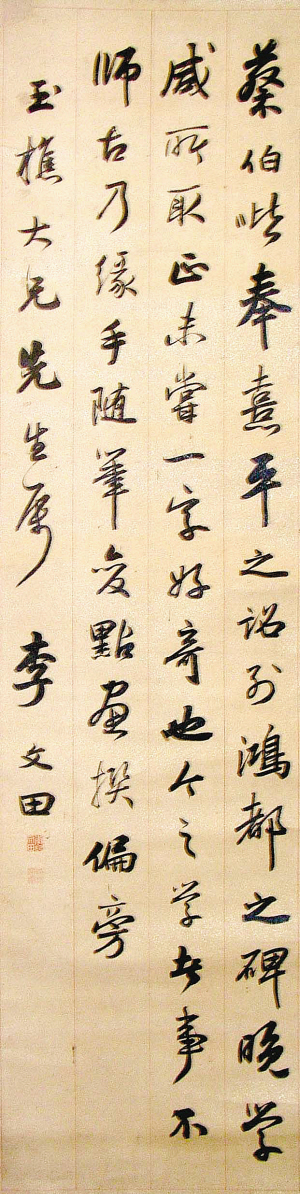 蔡伯喈奉熹平之詔列鴻都之碑晚学
咸所取正未嘗一字好奇也今之学者事不
师古乃缘手随筆变點画撰偏旁
玉樵大兄先生属 李文田